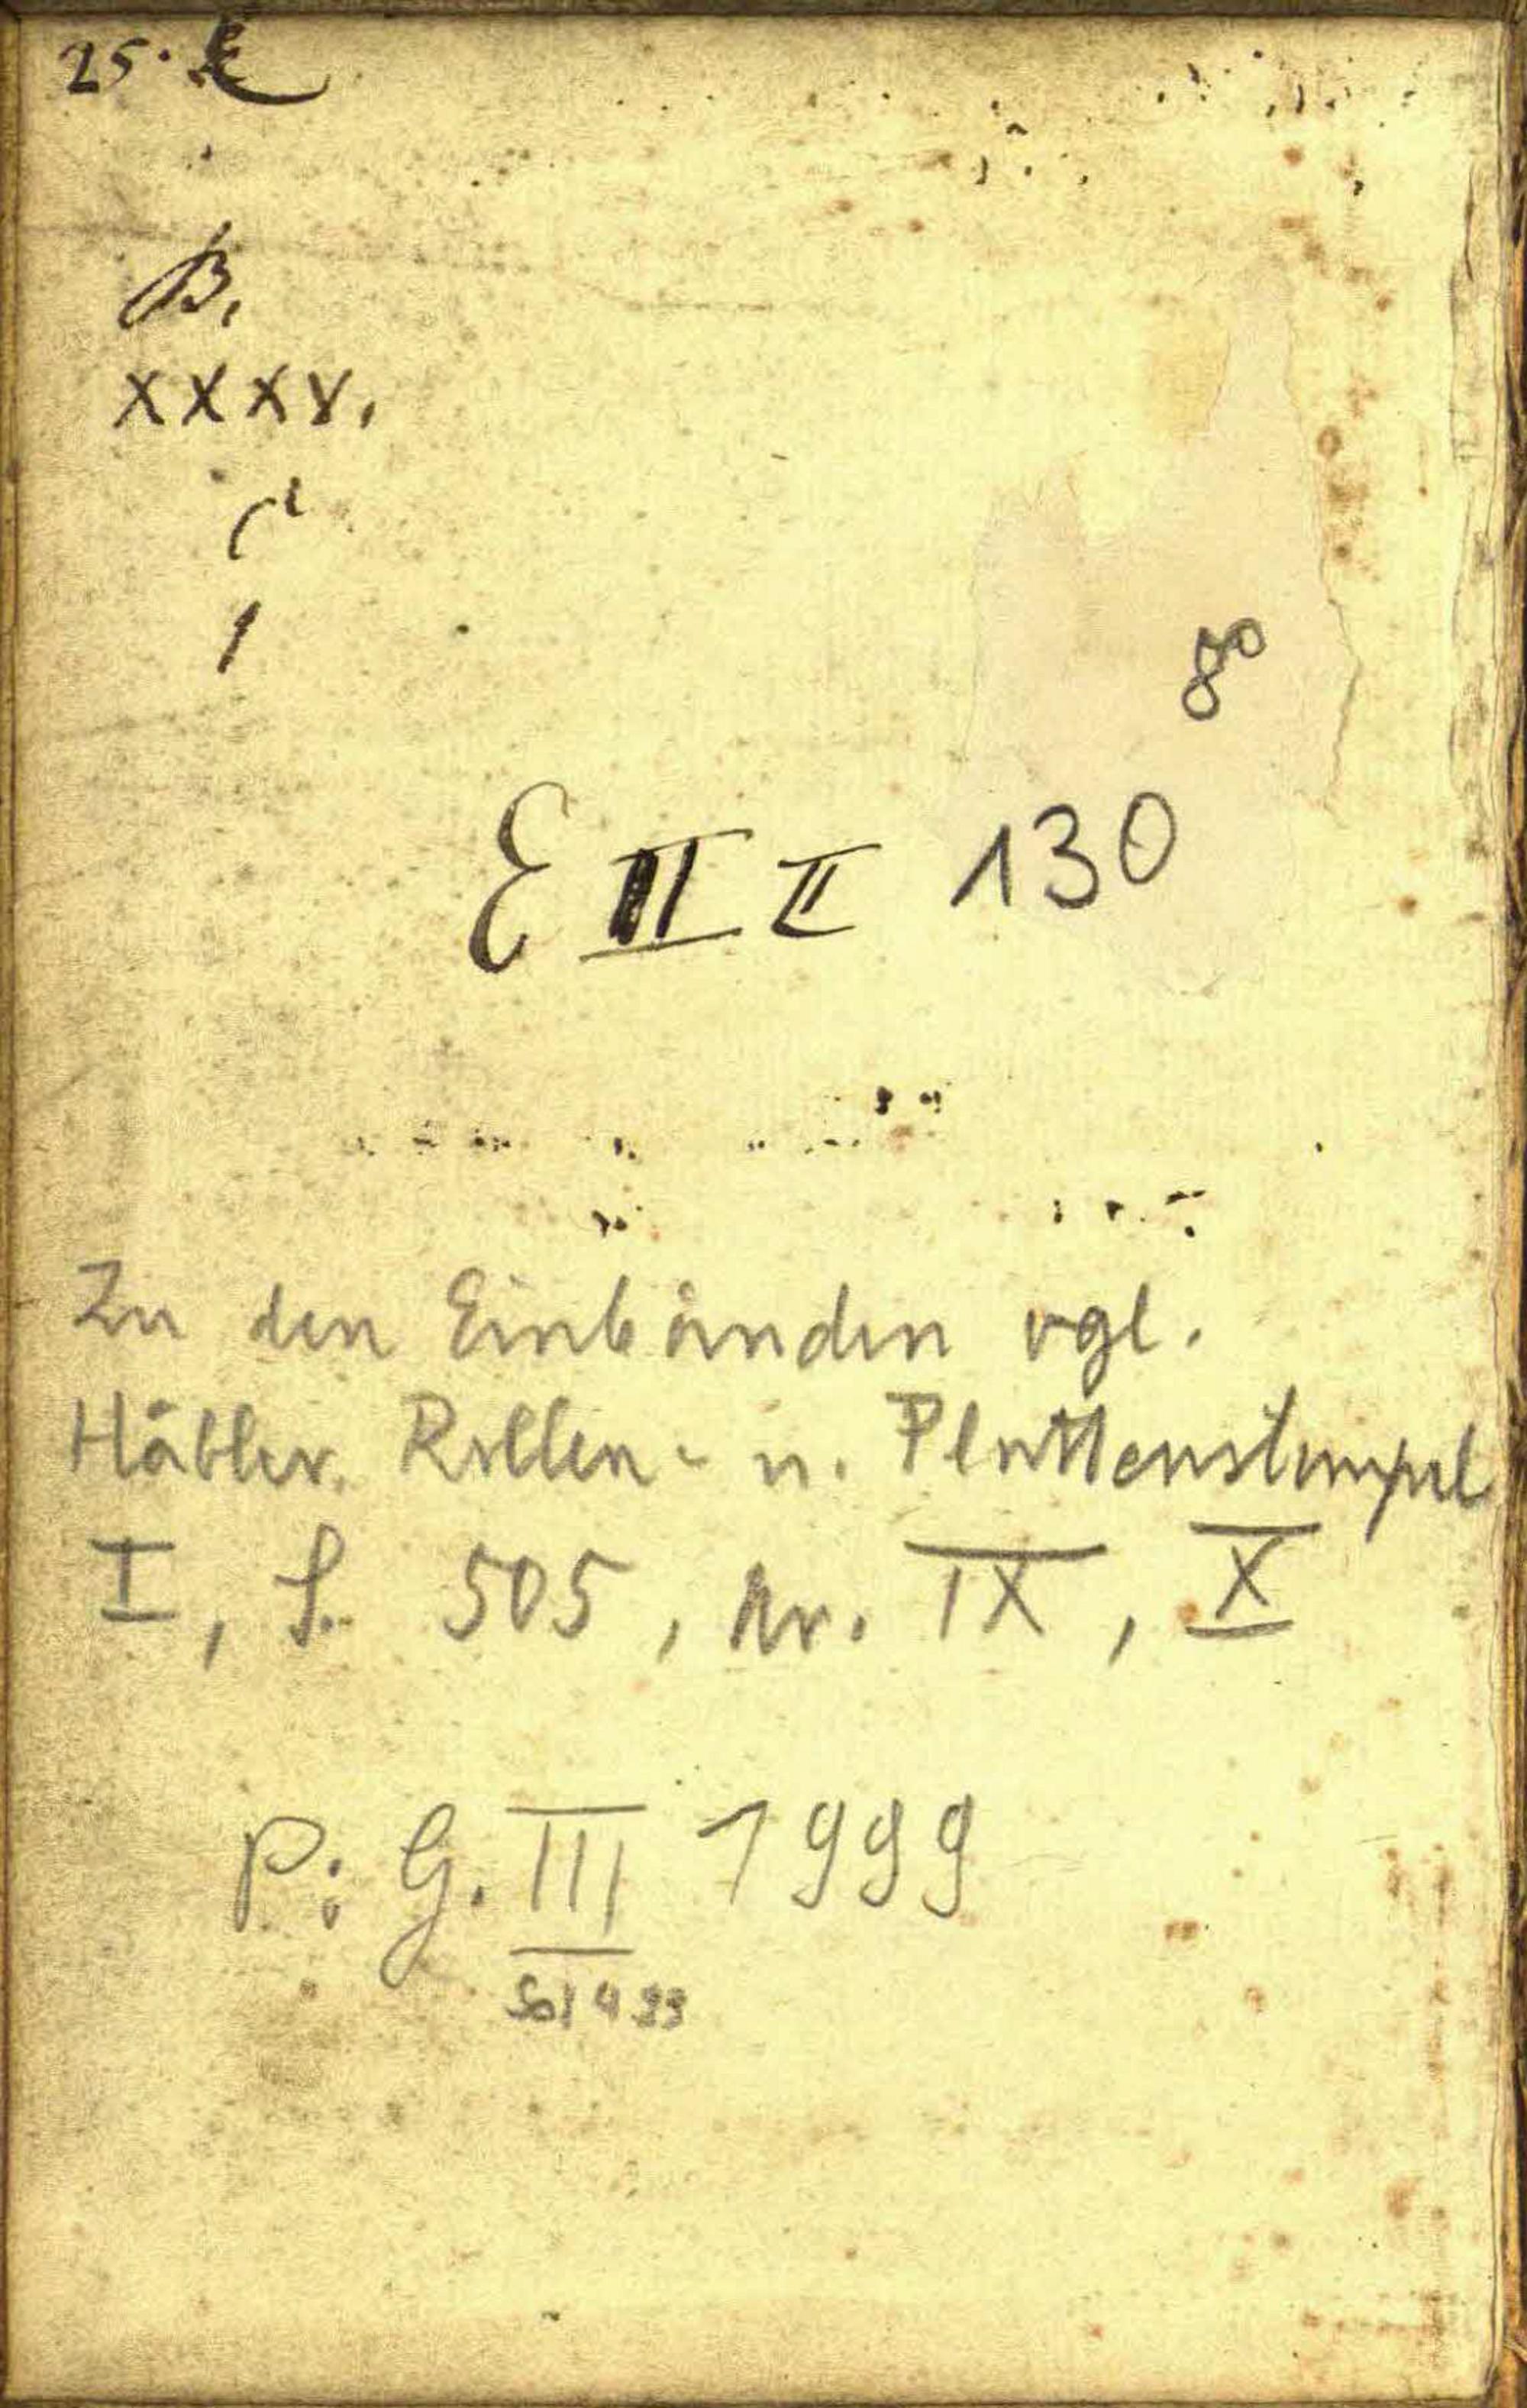 25.
B.
XXXV.
1
8°
E III II 130
Zu den Einbänden vgl.
Häbler, Rollen- u. Plattenstempel
I, S. 505, Nr. IX, X
P: G. III 1999